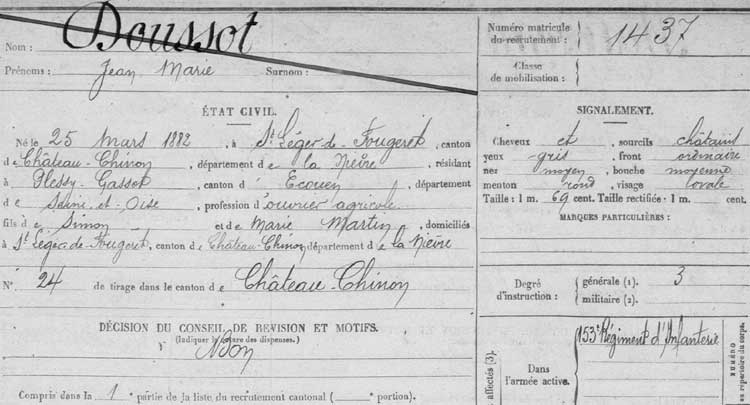 Doussot
Nom :
Prénoms : Jean Marie Surnom :
ÉTAT CIVIL.
Né le 25 mars 1882, à St Léger-de-Fougeret, canton
de Château-Chinon, département de la Nièvre, résidant
à Plessy-Gassot, canton d'Ecouen, département
de Seine-et-Oise, profession d'ouvrier agricole
fils de Simon et de Marie Martin, domiciliés
à St Léger-de-Fougeret, canton de Château-Chinon, département de la Nièvre
N° 24 de tirage dans le canton de Château-Chinon
DÉCISION DU CONSEIL DE REVISION ET MOTIFS.
(Indiquer la nature des dispenses.)
Bon
Compris dans la 1e partie de la liste du recrutement cantonal ( portion).
Numéro matricule
du recrutement : 1437
Classe
de mobilisation :
SIGNALEMENT.
Cheveux et sourcils châtains
yeux gris, front ordinaire
nez moyen, bouche moyenne
menton rond, visage ovale
Taille : 1 m. 69 cent. Taille rectifiée : 1 m. cent.
MARQUES PARTICULIÈRES :
Degré
d'instruction :
générale (1). 3
militaire (2).
153e Régiment d'Infanterie
Dans
l'armée active.
affectés (3).
NUMÉRO
au répertoire du corps.